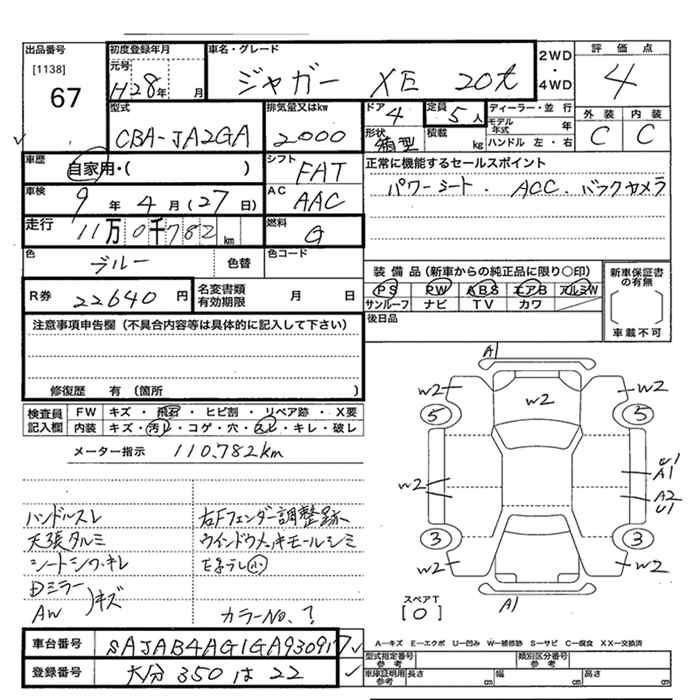 出品番号
[1138]
67
初度登録年月
元号
H28年 月
車名・グレード
ジャガー XE 20t
2WD
・
4WD
評価点
4
外装 内装
C C
型式
CBA-JA2GA
排気量又はkw
2000
ドア
4
形状
箱型
定員
5人
積載
kg
ディーラー・並行
モデル年式 年
ハンドル 左・右
車歴
自家用・( )
シフト
FAT
車検
9年 4月 (27日)
AC
AAC
走行
11万0千782km
燃料
G
正常に機能するセールスポイント
パワーシート. ACC. バックカメラ
色
ブルー
色替
色コード
R券
22640円
名変書類有効期限 月 日
装備品 (新車からの純正品に限り○印)
PS PW ABS エアB アルミW
サンルーフ ナビ TV カワ
後日品
新車保証書の有無
車載不可
注意事項申告欄 (不具合内容等は具体的に記入して下さい)
修復歴 有 (箇所 )
検査員記入欄
FW キズ・飛石・ヒビ割・リペア跡・X要
内装 キズ・汚レ・コゲ・穴・スレ・キレ・破レ
メーター指示 110,782km
ハンドルスレ
天張タルミ
シートシワ・キレ
右Fフェンダー調整跡
ウインドウメッキモールシミ
キズ
AW
カラーNo.?
A1
W2 W2 W2
5 5
W2
U1
A1
A2
U1
3 3
W2 W2
A1
スペアT
[0]
A―キズ E―エクボ U―凹み W―補修跡 S―サビ C―腐食 XX―交換済
車台番号
SAJAB4AG1GA930917
登録番号
大分 350 は 22
型式指定番号
参考
類別区分番号
参考
車庫証明用
参考
長さ cm 幅 cm 高さ cm